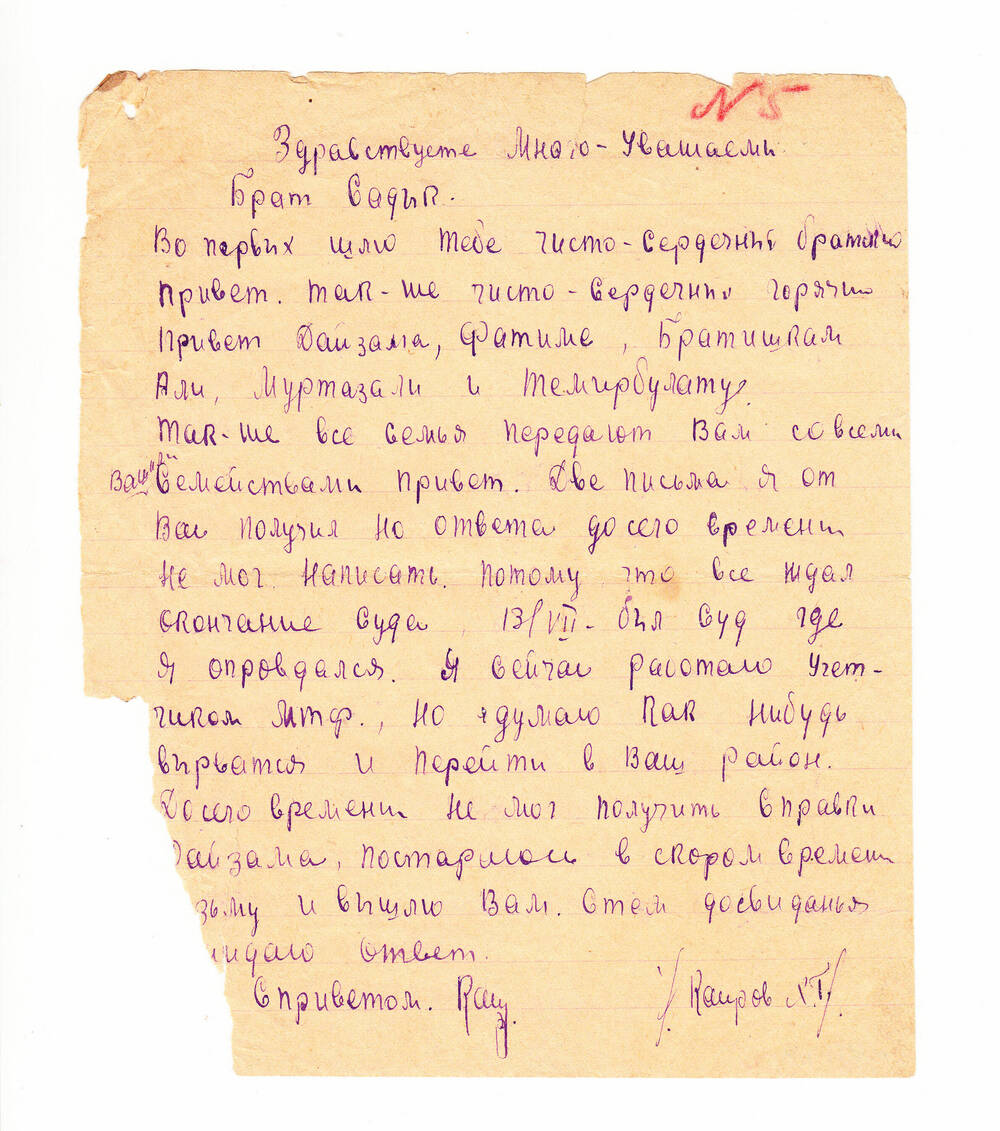 N 5
Здравствуете Много-Уважаеми
Брат Садык.
Во первых шлю тебе чисто-сердечный братско
привет. так-же чисто-сердечни горячи
привет Дайзама, Фатиме, Братишкам
Али, Муртазали и Темирбулату.
Так-же все семья передают Вам со всеми
Вашими Семействами привет. Две письма я от
Вас получил но ответа до сего времени
не мог написать. потому что все ждал
окончание суда, 13/VII- был суд где
я опровдался. Я сейчас работаю Учет-
чиком МТФ., но я думаю как нибудь
вырватся и перейти в Ваш район.
До сего времени не мог получить справки
Дайзама, постараюсь в скором времени
зьму и вышлю Вам. Стем досвиданья
жидаю ответ.
С приветом. Каир. /Каиров Х.Т./